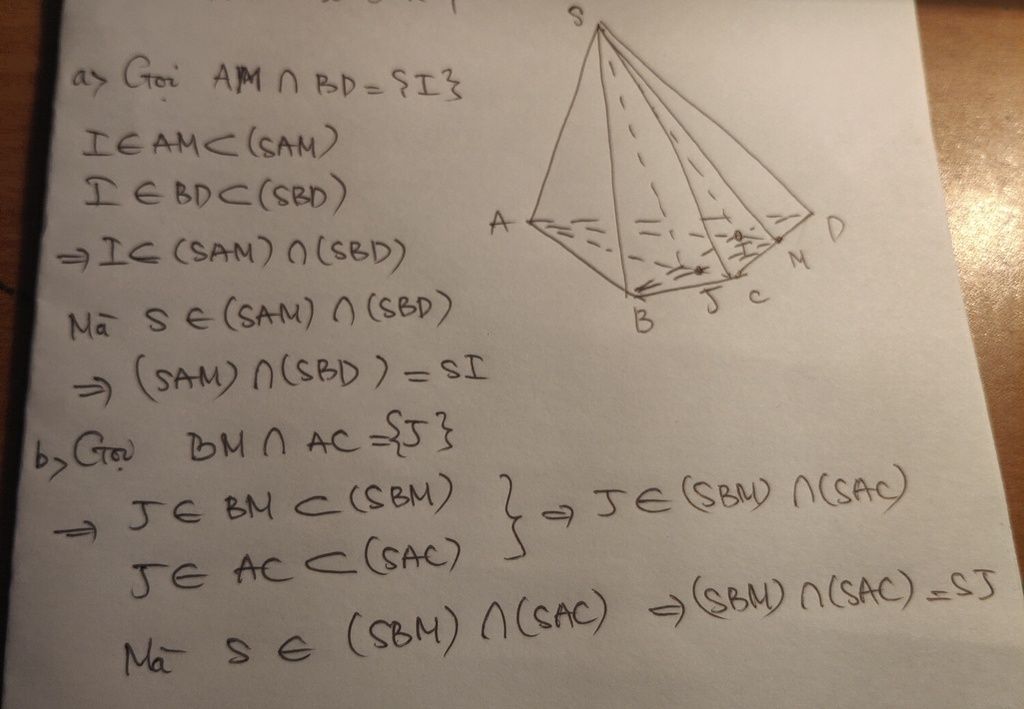 a> Gọi AM ∩ BD = {I}
I ∈ AM ⊂ (SAM)
I ∈ BD ⊂ (SBD)
⇒ I ∈ (SAM) ∩ (SBD)
Mà S ∈ (SAM) ∩ (SBD)
⇒ (SAM) ∩ (SBD) = SI
b> Gọi BM ∩ AC = {J}
⇒ J ∈ BM ⊂ (SBM) } ⇒ J ∈ (SBM) ∩ (SAC)
J ∈ AC ⊂ (SAC)
Mà S ∈ (SBM) ∩ (SAC) ⇒ (SBM) ∩ (SAC) = SJ
S
A
D
I
M
B
J
C